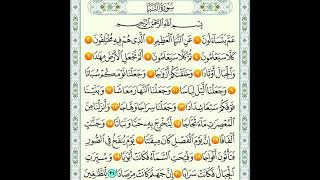 سُورَةُ النَّبَإِ
بِسْمِ اللَّهِ الرَّحْمَٰنِ الرَّحِيمِ
عَمَّ يَتَسَآءَلُونَ ١ عَنِ النَّبَإِ الْعَظِيمِ ٢ الَّذِى هُمْ فِيهِ مُخْتَلِفُونَ ٣
كَلَّا سَيَعْلَمُونَ ٤ ثُمَّ كَلَّا سَيَعْلَمُونَ ٥ أَلَمْ نَجْعَلِ الْأَرْضَ مِهَٰدًا ٦
وَالْجِبَالَ أَوْتَادًا ٧ وَخَلَقْنَٰكُمْ أَزْوَٰجًا ٨ وَجَعَلْنَا نَوْمَكُمْ سُبَاتًا ٩
وَجَعَلْنَا الَّيْلَ لِبَاسًا ١٠ وَجَعَلْنَا النَّهَارَ مَعَاشًا ١١ وَبَنَيْنَا
فَوْقَكُمْ سَبْعًا شِدَادًا ١٢ وَجَعَلْنَا سِرَاجًا وَهَّاجًا ١٣ وَأَنزَلْنَا مِنَ
الْمُعْصِرَٰتِ مَآءً ثَجَّاجًا ١٤ لِّنُخْرِجَ بِهِ حَبًّا وَنَبَاتًا ١٥ وَجَنَّٰتٍ
أَلْفَافًا ١٦ إِنَّ يَوْمَ الْفَصْلِ كَانَ مِيقَٰتًا ١٧ يَوْمَ يُنفَخُ فِى الصُّورِ
فَتَأْتُونَ أَفْوَاجًا ١٨ وَفُتِحَتِ السَّمَآءُ فَكَانَتْ أَبْوَٰبًا ١٩ وَسُيِّرَتِ
الْجِبَالُ فَكَانَتْ سَرَابًا ٢٠ إِنَّ جَهَنَّمَ كَانَتْ مِرْصَادًا ٢١ لِّلطَّٰغِينَ